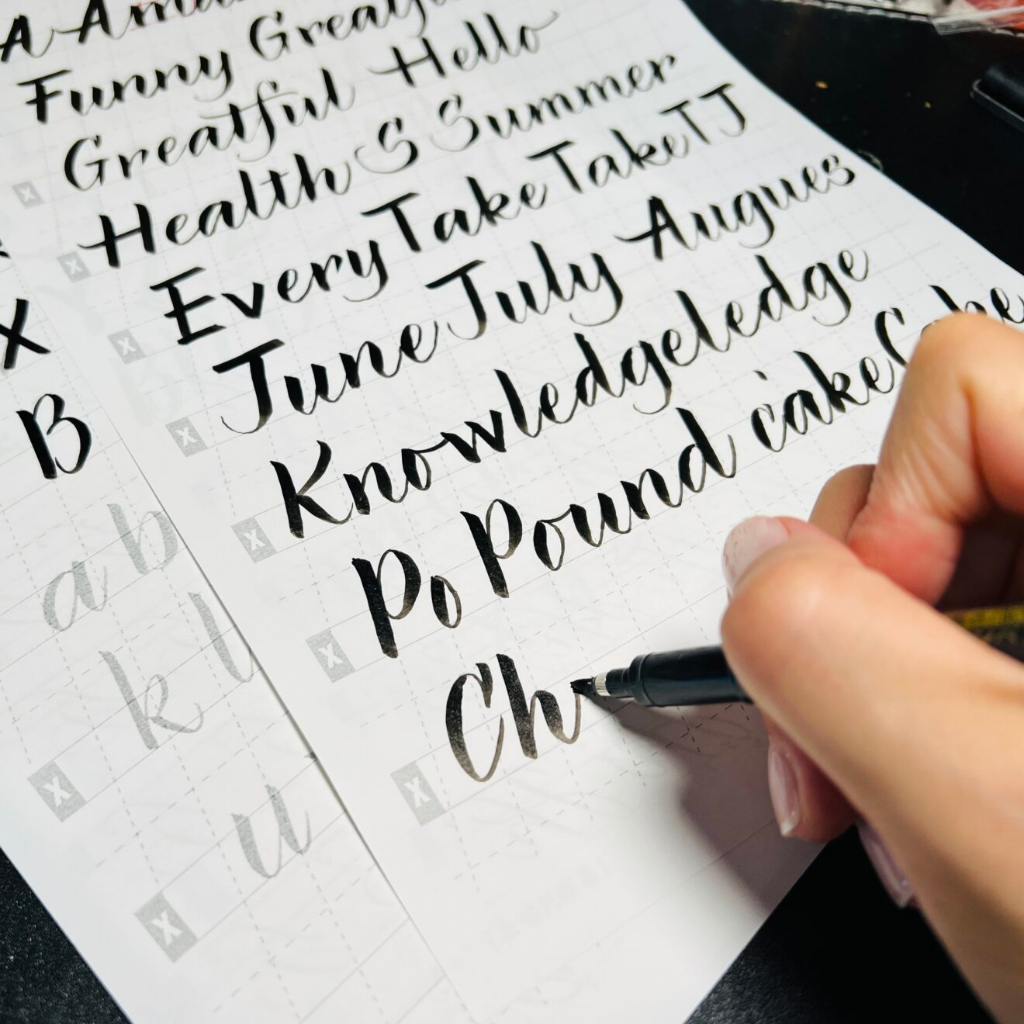 A
Funny
Greatful Hello
Health S Summer
Every Take Take TJ
June July Augues
Knowledgeledge
Po Pound cake
Ch
X
B
a b
k l
u